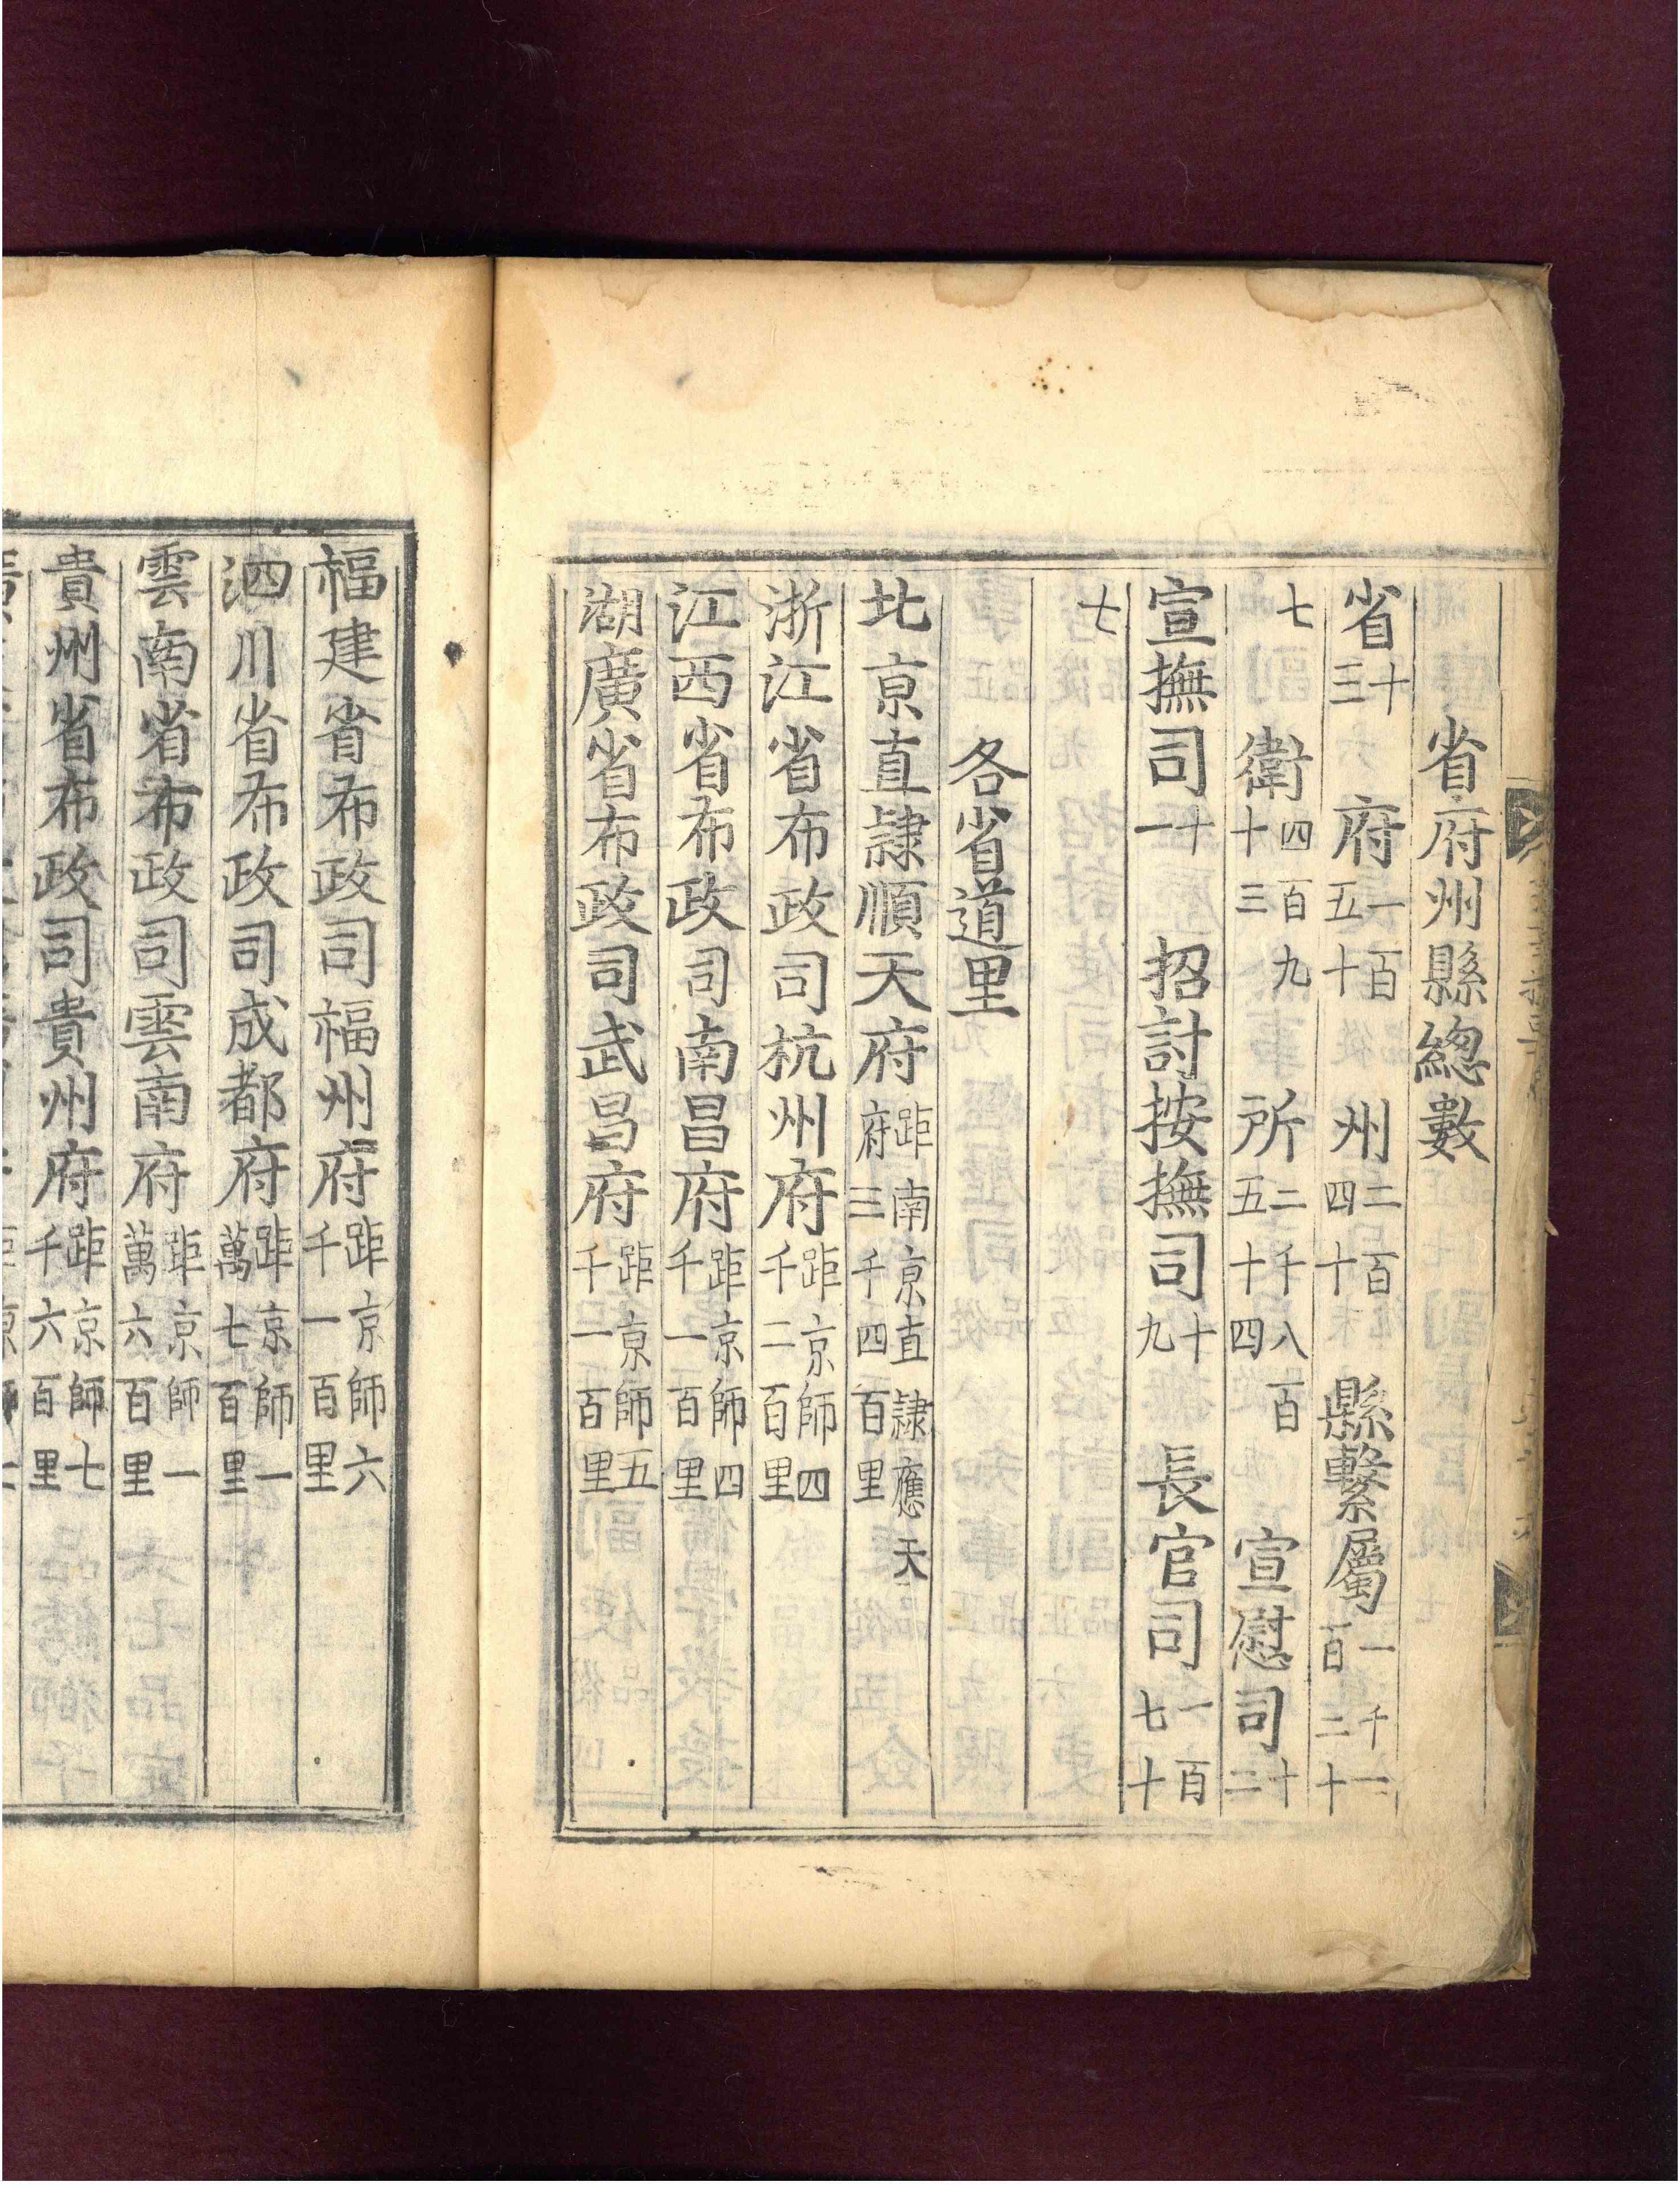 省府州縣緫數
省十三 府一百五十 州二百四十 縣繫屬一千一百二十
七 衛四百九十三 所二千八百五十四 宣慰司十二
宣撫司十一 招討按撫司十九 長官司一百七十
七
各省道里
北京直隷順天府距南京直隷應天府三千四百里
浙江省布政司杭州府距京師四千二百里
江西省布政司南昌府距京師四千一百里
湖廣省布政司武昌府距京師五千一百里
福建省布政司福州府距京師六千一百里
泗川省布政司成都府距京師一萬七百里
雲南省布政司雲南府距京師一萬六百里
貴州省布政司貴州府距京師七千六百里